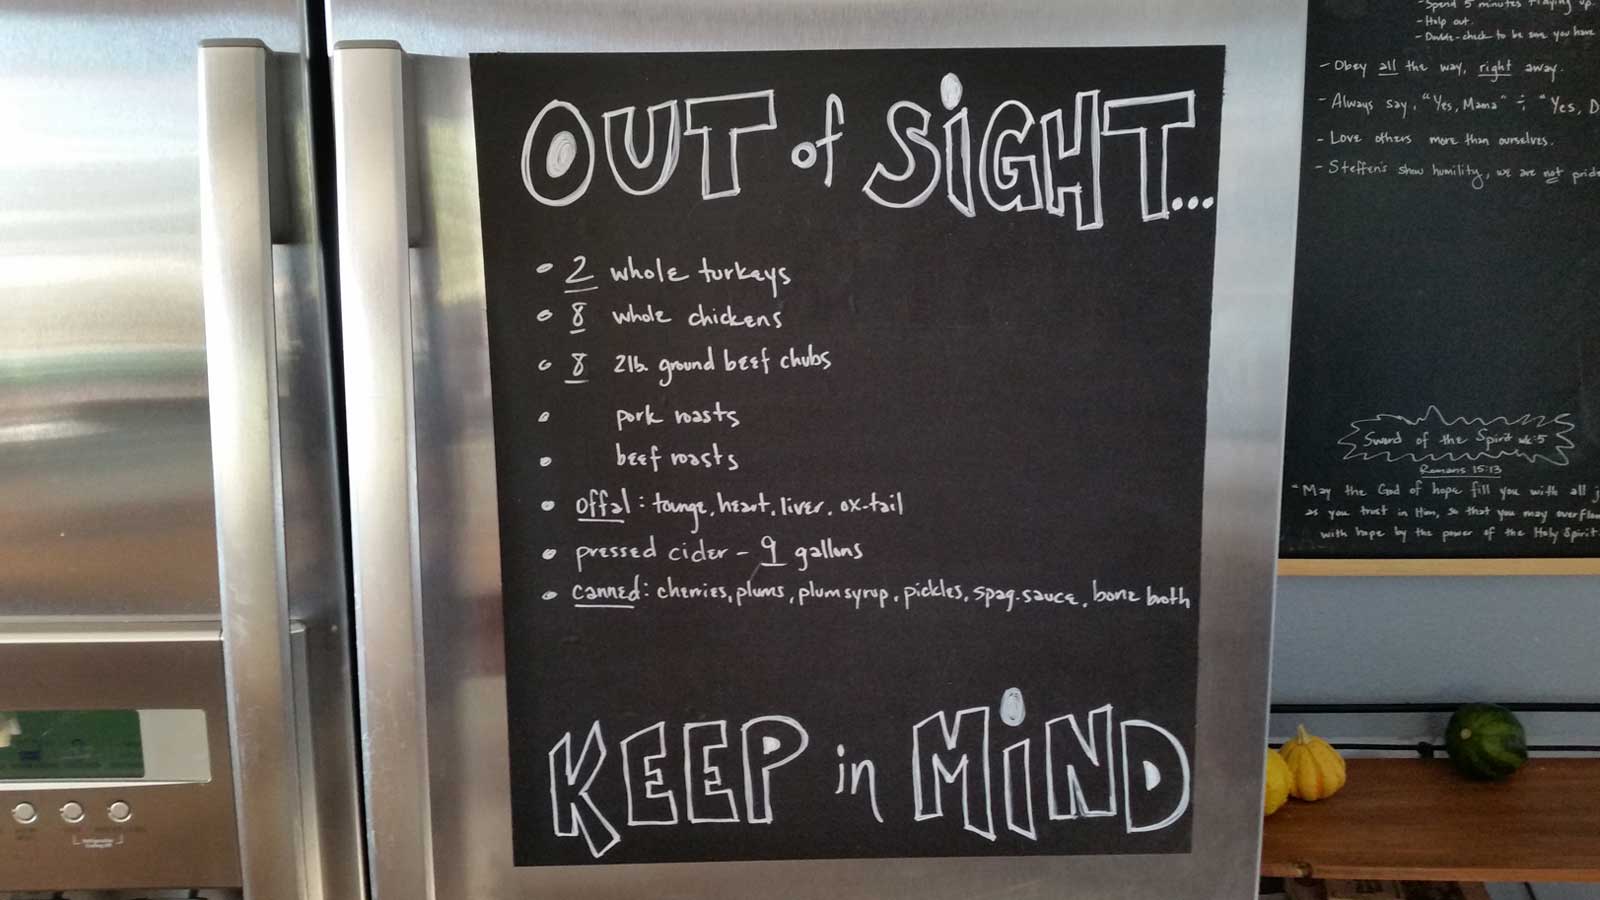 OUT of SiGHT...
• 2 whole turkeys
• 8 whole chickens
• 8 2lb. ground beef chubs
• pork roasts
• beef roasts
• offal: tounge, heart, liver, ox-tail
• pressed cider - 9 gallons
• canned: cherries, plums, plum syrup, pickles, spag. sauce, bone broth
KEEP in MiND
- Spend 5 minutes
- Help out.
- Double-check to be sure you have
- Obey all the way, right away.
- Always say, "Yes, Mama" "Yes, D
- Love others more than ourselves.
- Steffen's show humility, we are not pride
Sword of the Spirit wk:5
Romans 15:13
"May the God of hope fill you with all j
as you trust in Him, so that you may overflow
with hope by the power of the Holy Spirit.